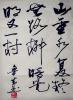 山重水复疑
無路柳暗花
明又一村